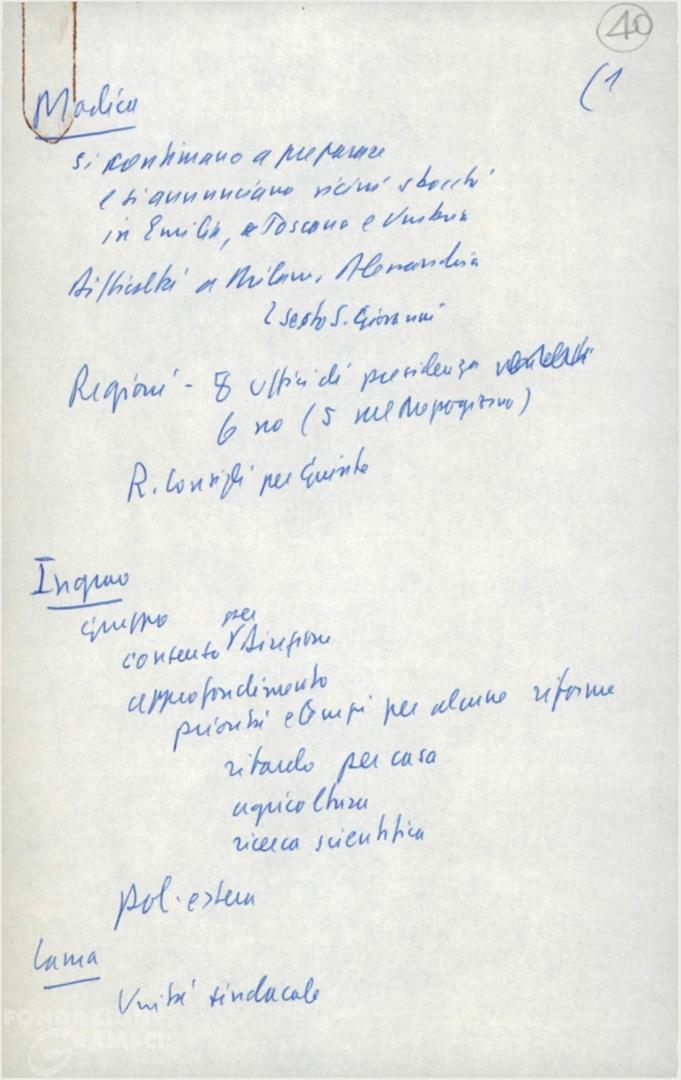 40
(1
Modica
si continuano a preparare
e si annunciano vicini sbocchi
in Emilia, Toscana e Umbria
Difficoltà a Milano, Alessandria
Sesto S. Giovanni
Regioni - 8 uffici di presidenza
6 no (5 nel Mezzogiorno)
R. Consigli per Quinto
Ingrao
gruppo per
contento direzione
approfondimento
priorità e tempi per alcune riforme
ritardo per casa
agricoltura
ricerca scientifica
pol. estera
Lama
Unità sindacale
FONDAZIONE
GRAMSCI